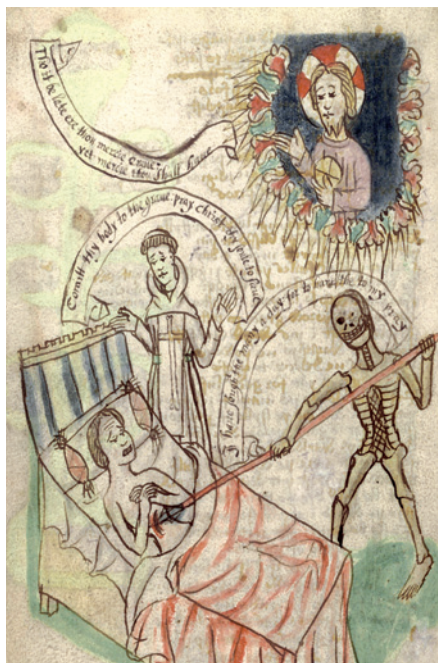 Tho it be late ere thou mercie crave:
yet mercie thou shall have
Comitt thy body to the grave pray christ thy soule to save
I have sough the many a day for to have the to my pray